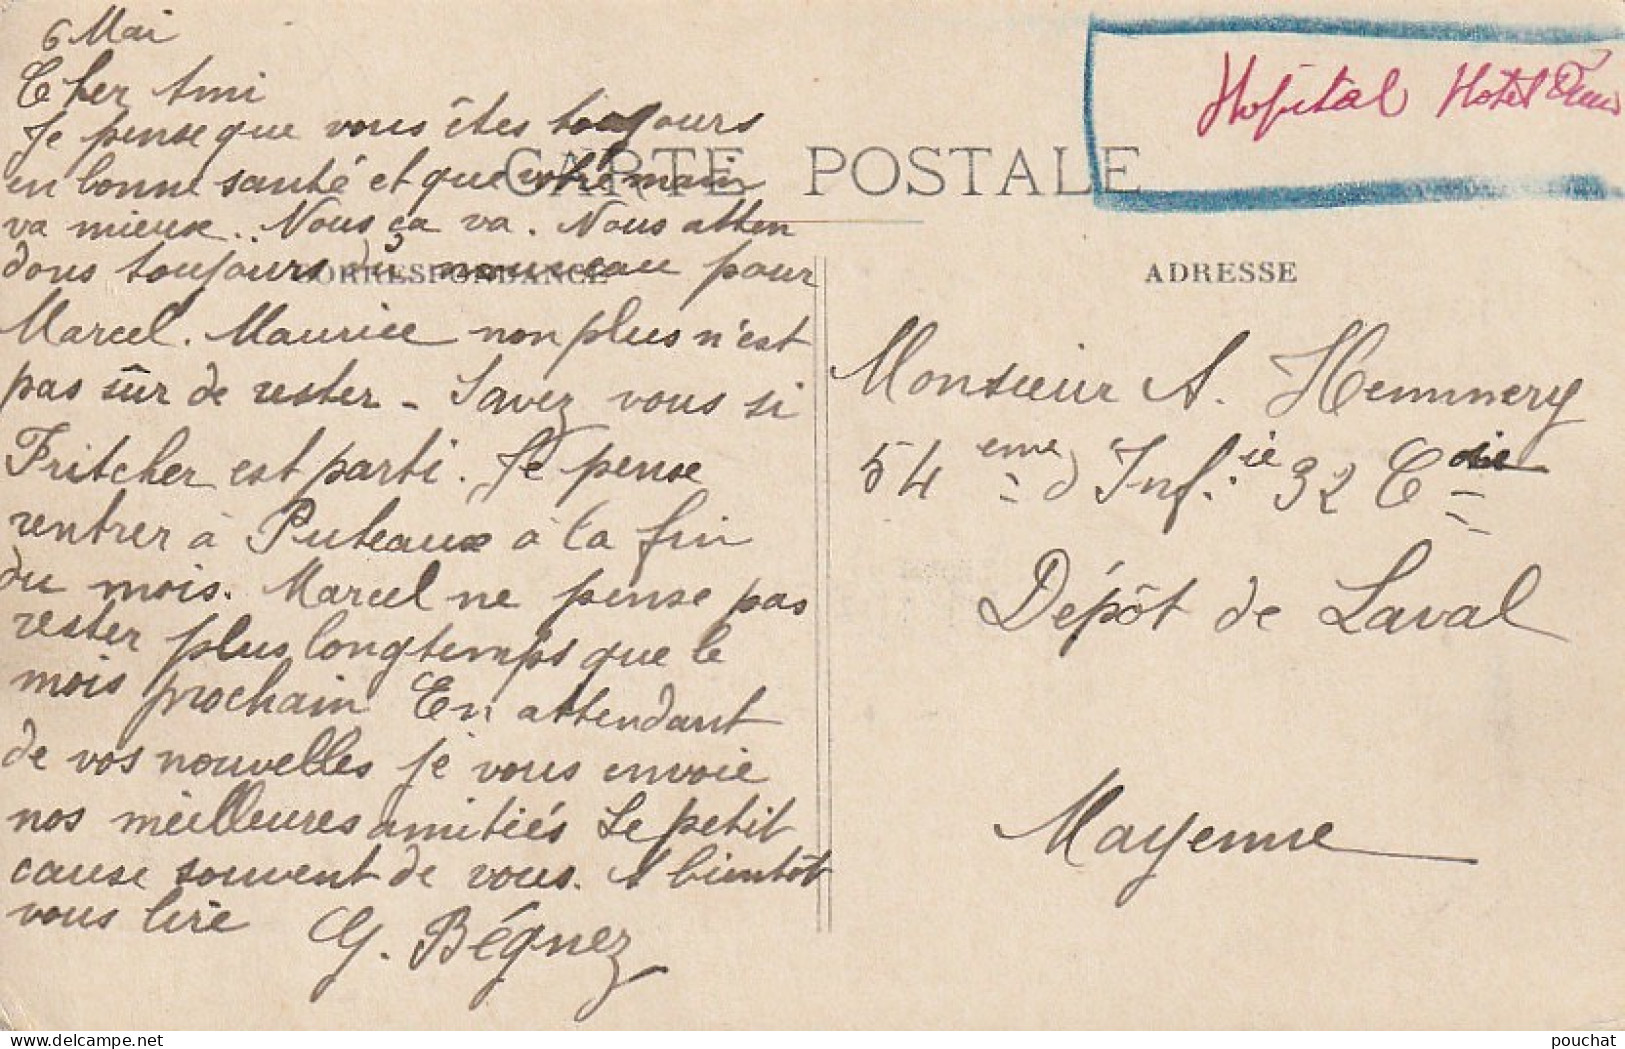 6 Mai
Cher Ami
Je pense que vous êtes toujours
en bonne santé et que votre main
va mieux. Nous ça va. Nous atten
dons toujours du nouveau pour
Marcel. Maurice non plus n'est
pas sûr de rester - Savez vous si
Fritcher est parti. Je pense
rentrer à Puteaux à la fin
du mois. Marcel ne pense pas
rester plus longtemps que le
mois prochain En attendant
de vos nouvelles je vous envoie
nos meilleures amitiés Le petit
cause souvent de vous. A bientôt
vous lire
G. Bégnez
CARTE POSTALE
CORRESPONDANCE
ADRESSE
Hopital Hotel Dieu
Monsieur A. Hemmery
54eme d'Inf.ie 32 Cie
Dépôt de Laval
Mayenne
delcampe.net
pouchat